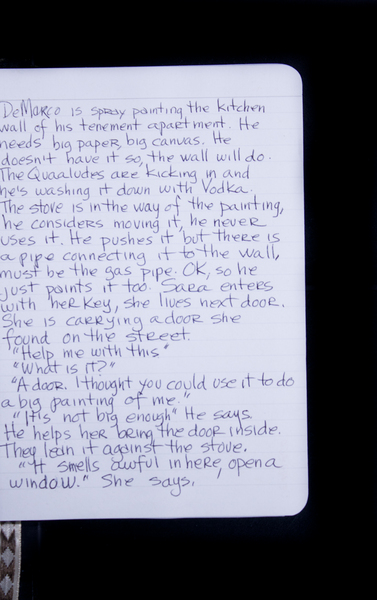 DeMarco is spray painting the kitchen
wall of his tenement apartment. He
needs big paper, big canvas. He
doesn't have it so, the wall will do.
The Quaaludes are kicking in and
he's washing it down with Vodka.
The stove is in the way of the painting,
he considers moving it, he never
uses it. He pushes it but there is
a pipe connecting it to the wall,
must be the gas pipe. OK, so he
just paints it too. Sara enters
with her key, she lives next door.
She is carrying a door she
found on the street.
"Help me with this"
"What is it?"
"A door. I thought you could use it to do
a big painting of me."
"It's not big enough" He says
He helps her bring the door inside.
They lean it against the stove.
"It smells awful in here, open a
window." She says.